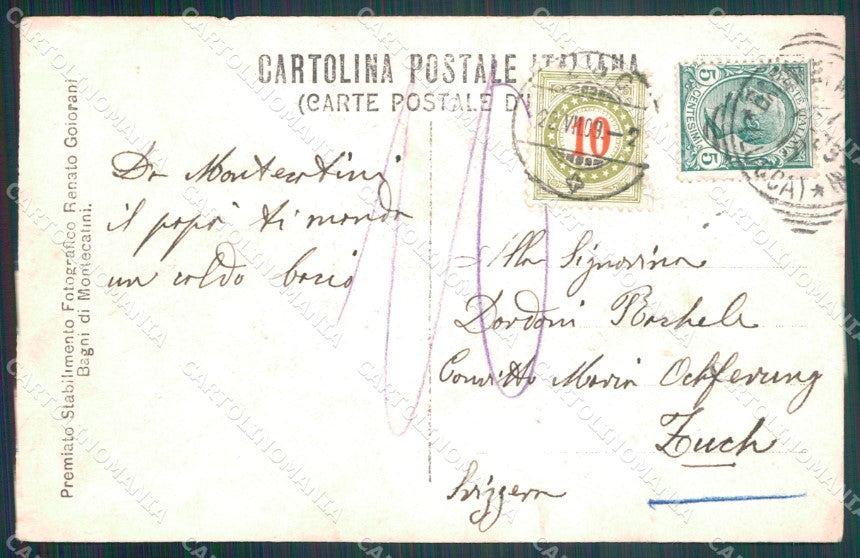 CARTOLINA POSTALE ITALIANA
(CARTE POSTALE D'I
10
5 5
CENTESIMI
Da Montecatini
il papà ti manda
un caldo bacio
Alla Signorina
Dordoni Rachele
Convitto Maria Opferung
Zuch
Svizzera
Premiato Stabilimento Fotografico Renato Goiorani
Bagni di Montecatini.
CARTOLINOMANIA